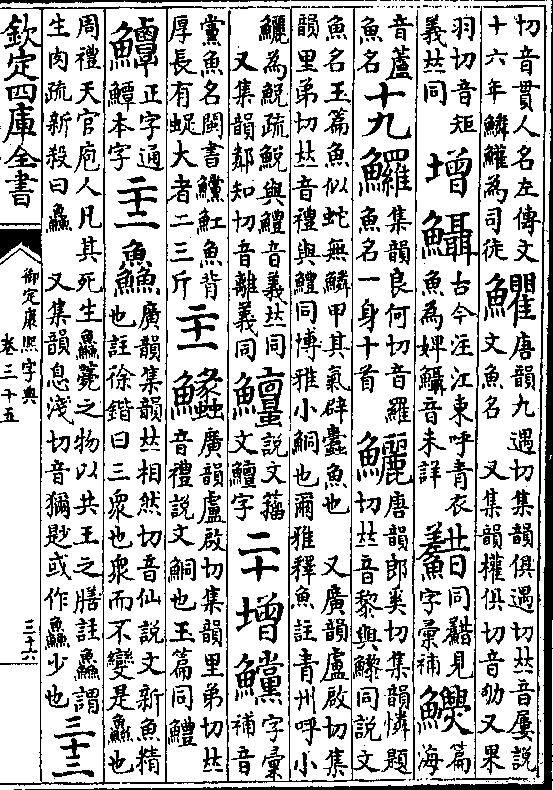 切音貫人名左傳文
十六年鱗鱹為司徒
唐韻九遇切集韻俱遇切𠀤音屨說
文魚名　又集韻權俱切音劬又果
羽切音矩
義𠀤同
增
古今注江東呼青衣
魚為婢　音未詳
同　見
字彙補
篇
海
音蘆
魚名
十九
集韻良何切音羅
魚名一身十首
鱺
唐韻郎奚切集韻憐題
切𠀤音黎與　同說文
魚名玉篇魚似蛇無鱗甲其氣辟蠹魚也　又廣韻盧啟切集
韻里弟切𠀤音禮與鱧同博雅小鮦也爾雅釋魚註青州呼小
鱺為鮵疏鮵與鱧音義𠀤同
又集韻鄰知切音離義同
說文籀
文鱣字
二十
增
字彙
補音
黨魚名閩書　魟魚背
厚長有　大者二三斤
二十一
廣韻盧啟切集韻里弟切𠀤
音禮說文鮦也玉篇同鱧
正字通
鱏本字
二十二
鱻
廣韻集韻𠀤相然切音仙說文新魚精
也註徐鍇曰三衆也衆而不變是鱻也
周禮天官庖人凡其死生鱻薧之物以共王之膳註鱻謂
生肉疏新殺曰鱻　又集韻息淺切音獮尟或作鱻少也
三十三
欽定四庫全書
御定康熙字典
卷三十五
三十六